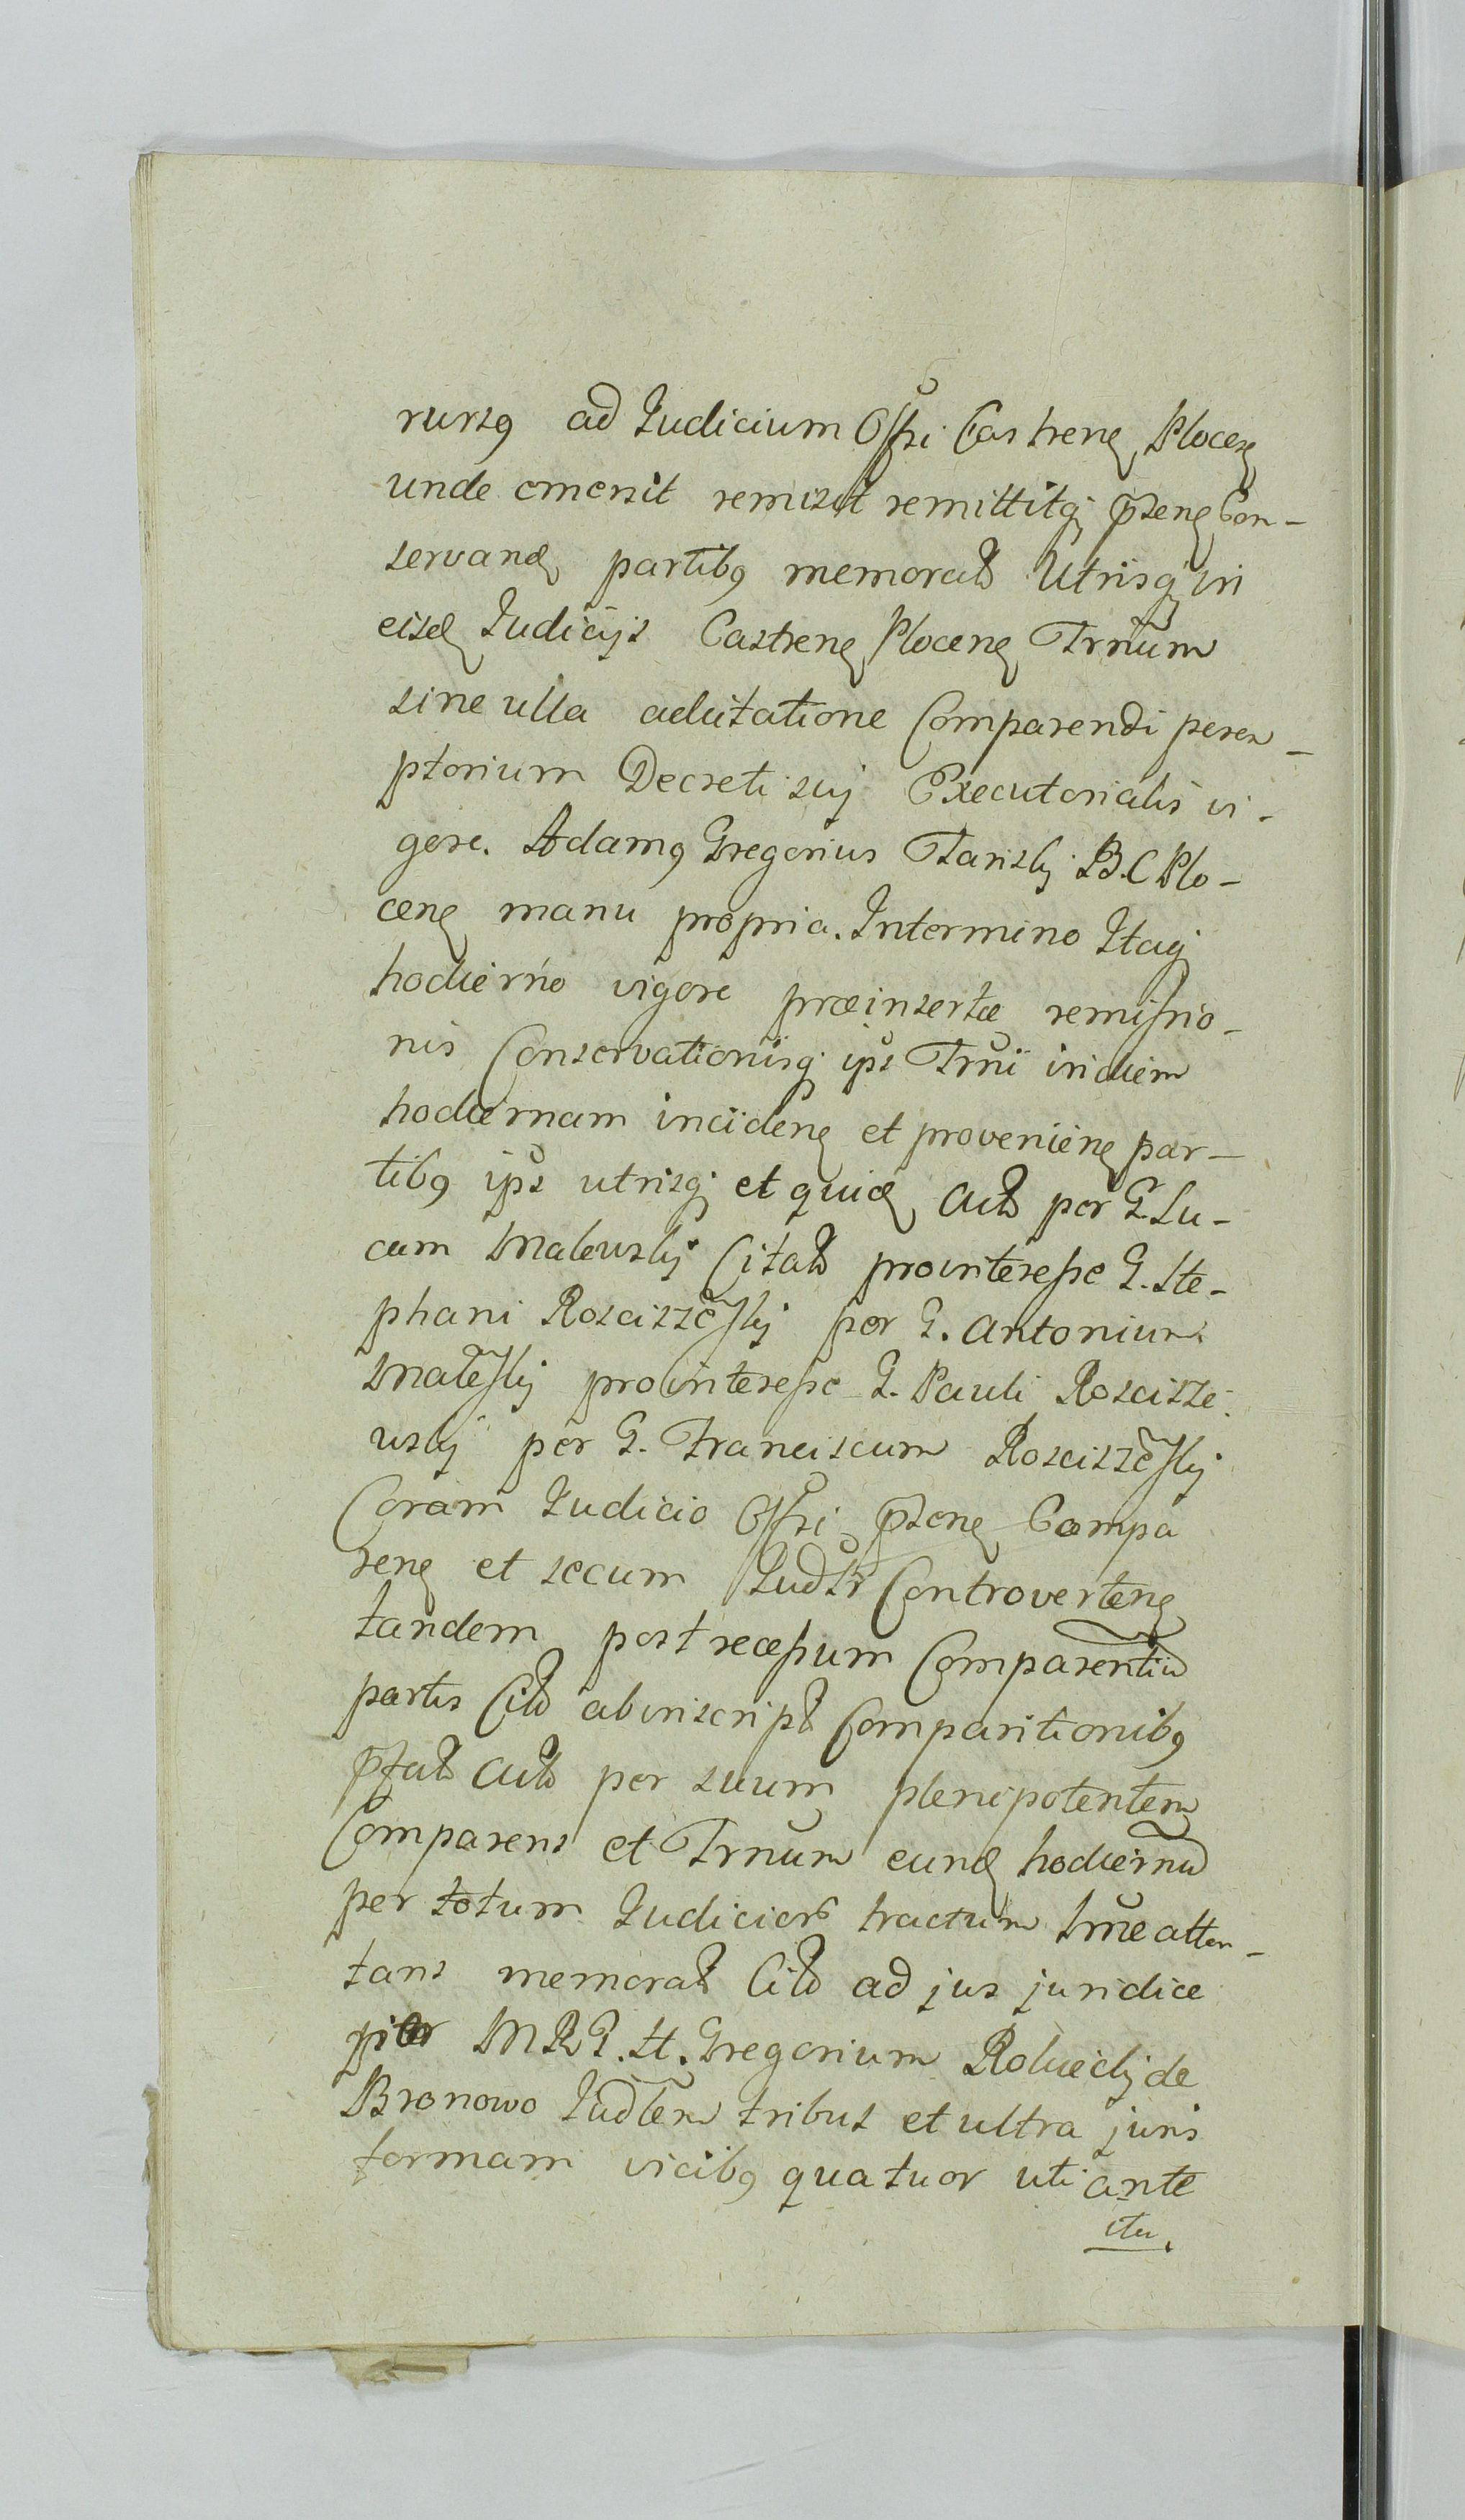 rursꝯ ad Judicium Offi Castrenꝭ Plocenꝭ
unde emersit remisit remittitqꝫ p̃senꝭ Con-
servandꝭ partibꝯ memoratꝭ Utrisqꝫ in
eisdꝭ Judicijs Castrenꝭ Plocenꝭ Trñum
sine ulla adcitatione Comparendi perem-
ptorium Decreti suj Executorialis vi-
gore. Adamꝯ Gregorius Tarislij B.C Plo-
cenꝭ manu propria. In termino Itaqꝫ
hodierno vigore præinsertæ remissio-
nis Conservationisqꝫ ips̃ Trñi in diem
hodiernam incidenꝭ et provenienꝭ par-
tibꝯ ips̃ utrisqꝫ et quidꝭ Actꝭ per G. Lu-
cam Malewskj Citatꝭ pro interesse G. Ste-
phani Roscisze̅skj per G. Antonium
Male̅skj pro interesse G. Pauli Roscisze-
wskj per G. Franciscum Roscisze̅skj
Coram Judicio Offi p̃senꝭ Compa
renꝭ et secum Judltr Controvertenꝭ
tandem post recessum Comparentiũ
partis Citꝭ ab inscriptꝭ Comparitionibꝯ
p̃fatꝭ Actꝭ per suum plenipotentem
Comparens et Trñum eundꝭ hodiernũ
per totum Judiciorꝭ tractum trñe atten-
tans memoratꝭ Citꝭ ad jus juridice
per MRG. St. Gregorium Roluieckj de
Bronowo Judlem tribus et ultra juris
formam vicibꝯ quatuor uti ante
itu.